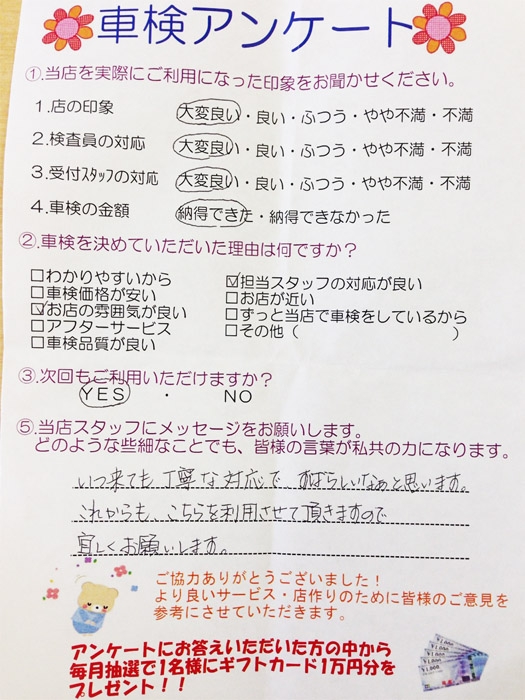 車検アンケート
①.当店を実際にご利用になった印象をお聞かせください。
1.店の印象 大変良い・良い・ふつう・やや不満・不満
2.検査員の対応 大変良い・良い・ふつう・やや不満・不満
3.受付ｽﾀｯﾌの対応 大変良い・良い・ふつう・やや不満・不満
4.車検の金額 納得できた・納得できなかった
②.車検を決めていただいた理由は何ですか？
□わかりやすいから
□車検価格が安い
☑お店の雰囲気が良い
□アフターサービス
□車検品質が良い
☑担当スタッフの対応が良い
□お店が近い
□ずっと当店で車検をしているから
□その他（ ）
③.次回もご利用いただけますか？
YES ・ NO
⑤.当店スタッフにメッセージをお願いします。
どのような些細なことでも、皆様の言葉が私共の力になります。
いつ来ても丁寧な対応ですばらしいなぁと思います。
これからも、こちらを利用させて頂きますので
宜しくお願いします。
ご協力ありがとうございました！
より良いサービス・店作りのために皆様のご意見を
参考にさせていただきます。
アンケートにお答えいただいた方の中から
毎月抽選で1名様にギフトカード1万円分を
プレゼント！！
¥1,000
¥1,000
¥1,000
¥1,000
¥1,000